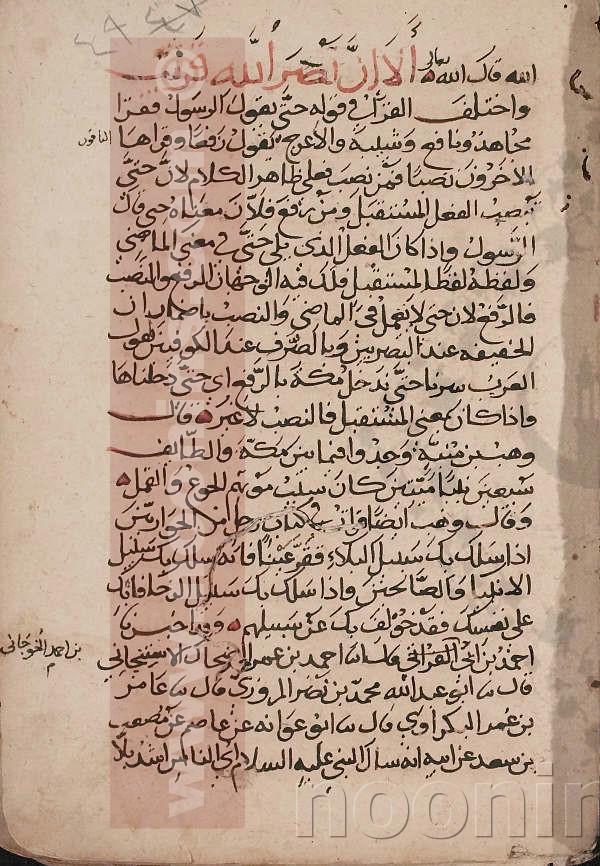 الله قال الله تعالى ألا إن نصر الله قريب
واختلف القراء في قوله حتى يقول الرسول فقرا
مجاهد ونافع وشيبة والاعرج يقول رفعا وقراها
الباقون
الاخرون نصبا فمن نصب فعلى ظاهر الكلام لان حتى
تنصب الفعل المستقبل ومن رفع فلان معناه حتى قال
الرسول واذا كان الفعل الذي يلي حتى في معنى الماضي
ولفظه لفظ المستقبل فلك فيه الوجهان الرفع والنصب
فالرفع لان حتى لا تعمل في الماضي والنصب باضمار ان
الخفيفة عند البصريين وبالصرف عند الكوفيين تقول
العرب سرنا حتى ندخل مكة بالرفع اي حتى دخلناها
واذا كان بمعنى المستقبل فالنصب لا غير وقال
وهب بن منبه وجدوا فيما بين مكة والطائف
سبعين نبيا ميتين كان سبب موتهم الجوع والقمل
وقال وهب ايضا قرات في كتاب رجل من الحواريين
اذا سلك بك سبيل البلاء فقر عينا فانه سلك بك سبيل
الانبيا والصالحين واذا سلك بك سبيل الرخا فابك
على نفسك فقد خولف بك عن سبيلهم واخبرنا
احمد بن ابي الفراتي قال انا احمد بن عمر الاسبنجاني
بن احمد
قال نا ابو عبد الله محمد بن نصر المروزي قال نا عامر
بن عمر البكراوي قال نا ابو عوانه عن عاصم عن مصعب
بن سعد عن ابيه انه سال النبي عليه السلام اي الناس اشد بلا
noonir